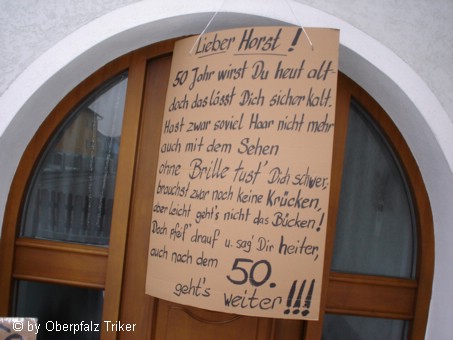 Lieber Horst!
50 Jahr wirst Du heut alt-
doch das lässt Dich sicher kalt.
Hast zwar soviel Haar nicht mehr
auch mit dem Sehen
ohne Brille tust' Dich schwer,
brauchst zwar noch keine Krücken,
aber leicht geht's nicht das Bücken!
Doch pfeif' drauf u. sag' Dir heiter,
auch nach dem 50.
geht's weiter!!!
© by Oberpfalz Triker